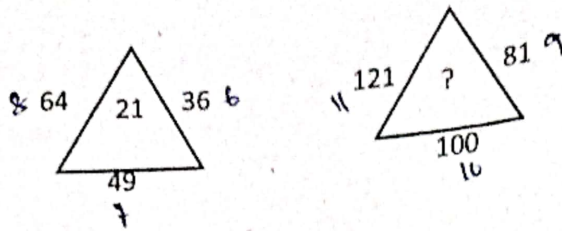 8 64 21 36 6
49
7
11 121 ? 81 9
100
10